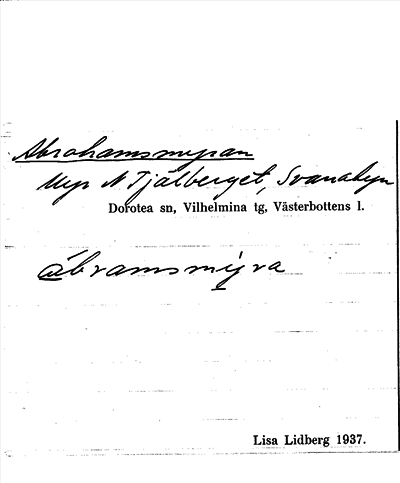 Abrahamsmyran
Myr N Tjälberget, Svanabyn
Dorotea sn, Vilhelmina tg, Västerbottens l.
àbramsmy̱ra
Lisa Lidberg 1937.